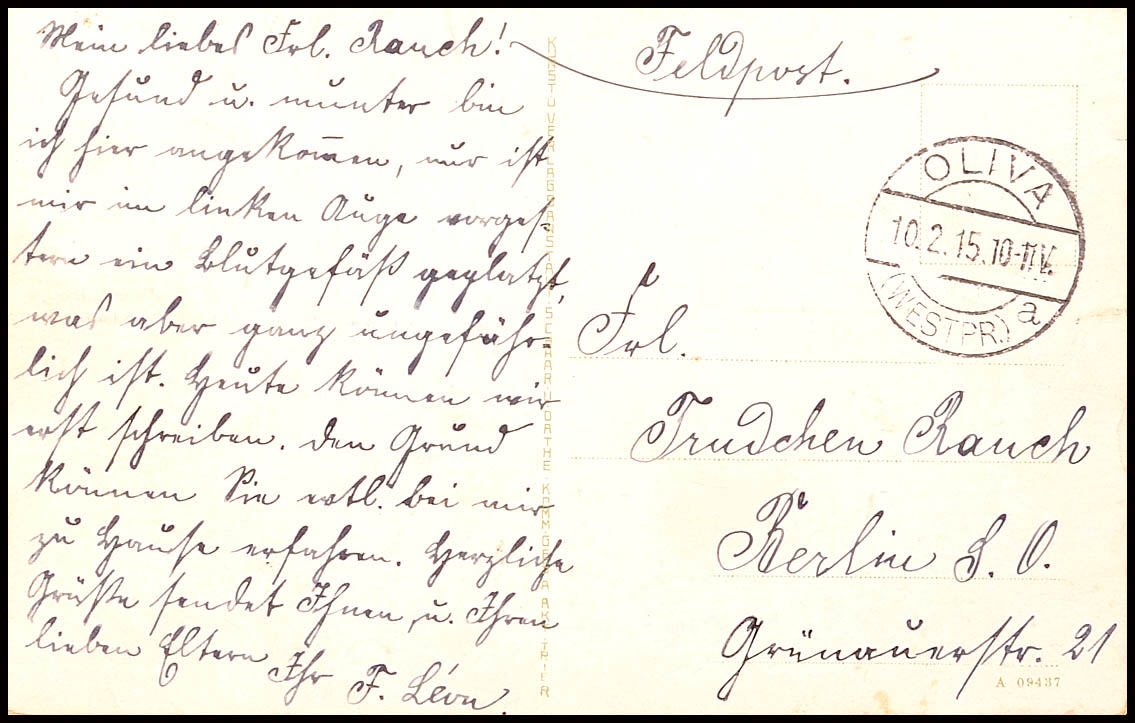 Mein liebes Frl. Rauch!
Gesund u. munter bin
ich hier angekom̄en, nur ist
mir im linken Auge vorges-
tern ein Blutgefäß geplatzt,
was aber ganz ungefähr-
lich ist. Heute können wir
erst schreiben. Den Grund
können Sie evtl. bei mir
zu Hause erfahren. Herzliche
Grüße sendet Ihnen u. Ihren
lieben Eltern
Ihr F. Léon
KUNST U. VERLAGSANSTALT SCHAAR U. DATHE KOMM. GES. A. AKT. TRIER
Feldpost.
OLIVA
10.2.15.10-11V.
(WESTPR.) a
Frl.
Trudchen Rauch
Berlin S.O.
Grünauerstr. 21
A 09437